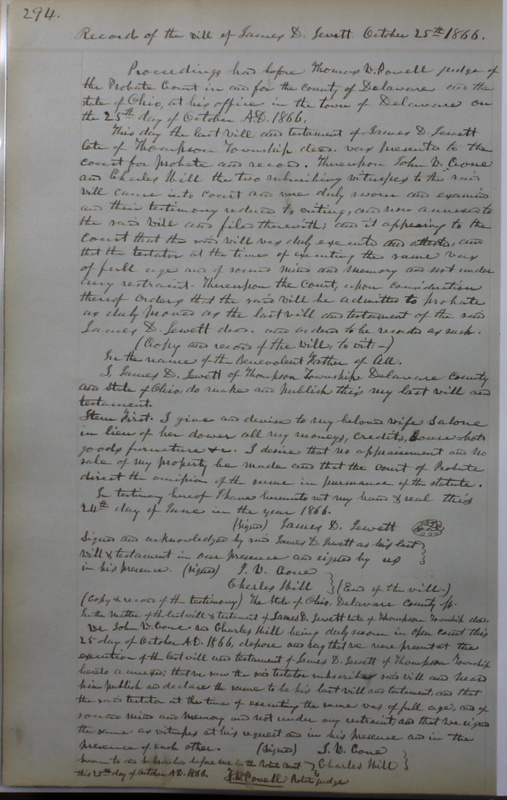 294.
Record of the will of James D. Jewett. October 25th 1866.
Proceedings had before Thomas W. Powell judge of
the Probate Court in and for the county of Delaware and the
state of Ohio, at his office in the town of Delaware on
the 25th day of October A.D. 1866.
This day the last will and testament of James D. Jewett
late of Thompson Township decd. was presented to the
court for probate and record. Thereupon John W. Cone
and Charles Hill the two subscribing witnesses to the said
will came into court and were duly sworn and examined
and their testimony reduced to writing, and now annexed to
the said will and filed therewith; and it appearing to the
Court that the said will was duly executed and attested, and
that the testator at the time of executing the same was
of full age and of sound mind and memory and not under
any restraint. Thereupon the Court, upon consideration
thereof orders that the said will be admitted to probate
as duly proved as the last will and testament of the said
James D. Jewett decd. and ordered to be recorded as such.
(Copy and record of the will, to wit -)
In the name of the Benevolent Father of All.
I, James D. Jewett of Thompson Township Delaware County
and State of Ohio do make and publish this my last will and
testament.
Item First. I give and devise to my beloved wife Salone
in lieu of her dower all my moneys, credits, house hold
goods furniture &c. I desire that no appraisement and no
sale of my property be made and that the court of Probate
direct the omission of the same in pursuance of the statute.
In testimony hereof I have hereunto set my hand & seal this
24th day of June in the year 1866.
(Signed) James D. Jewett
Signed and acknowledged by said James D. Jewett as his last
will & testament in our presence and signed by us
in his presence. (Signed) J. W. Cone
Charles Hill (End of the will.)
(Copy & record of the testimony) The State of Ohio, Delaware County ss.
In the matter of the last will & testament of James D. Jewett late of Thompson Township decd.
We John W. Cone and Charles Hill being duly sworn in open court this
25 day of October A.D. 1866, depose and say that we were present at the
execution of the last will and testament of James D. Jewett of Thompson Township
hereto annexed; that we saw the said testator subscribe said will and heard
him publish and declare the same to be his last will and testament, and that
the said testator at the time of executing the same was of full age, and of
sound mind and memory and not under any restraint and that we signed
the same as witnesses at his request and in his presence and in the
presence of each other. (Signed) J. W. Cone
Sworn to and subscribed before me in the Probate Court Charles Hill
this 25th day of October A.D. 1866. T. W. Powell Probate judge